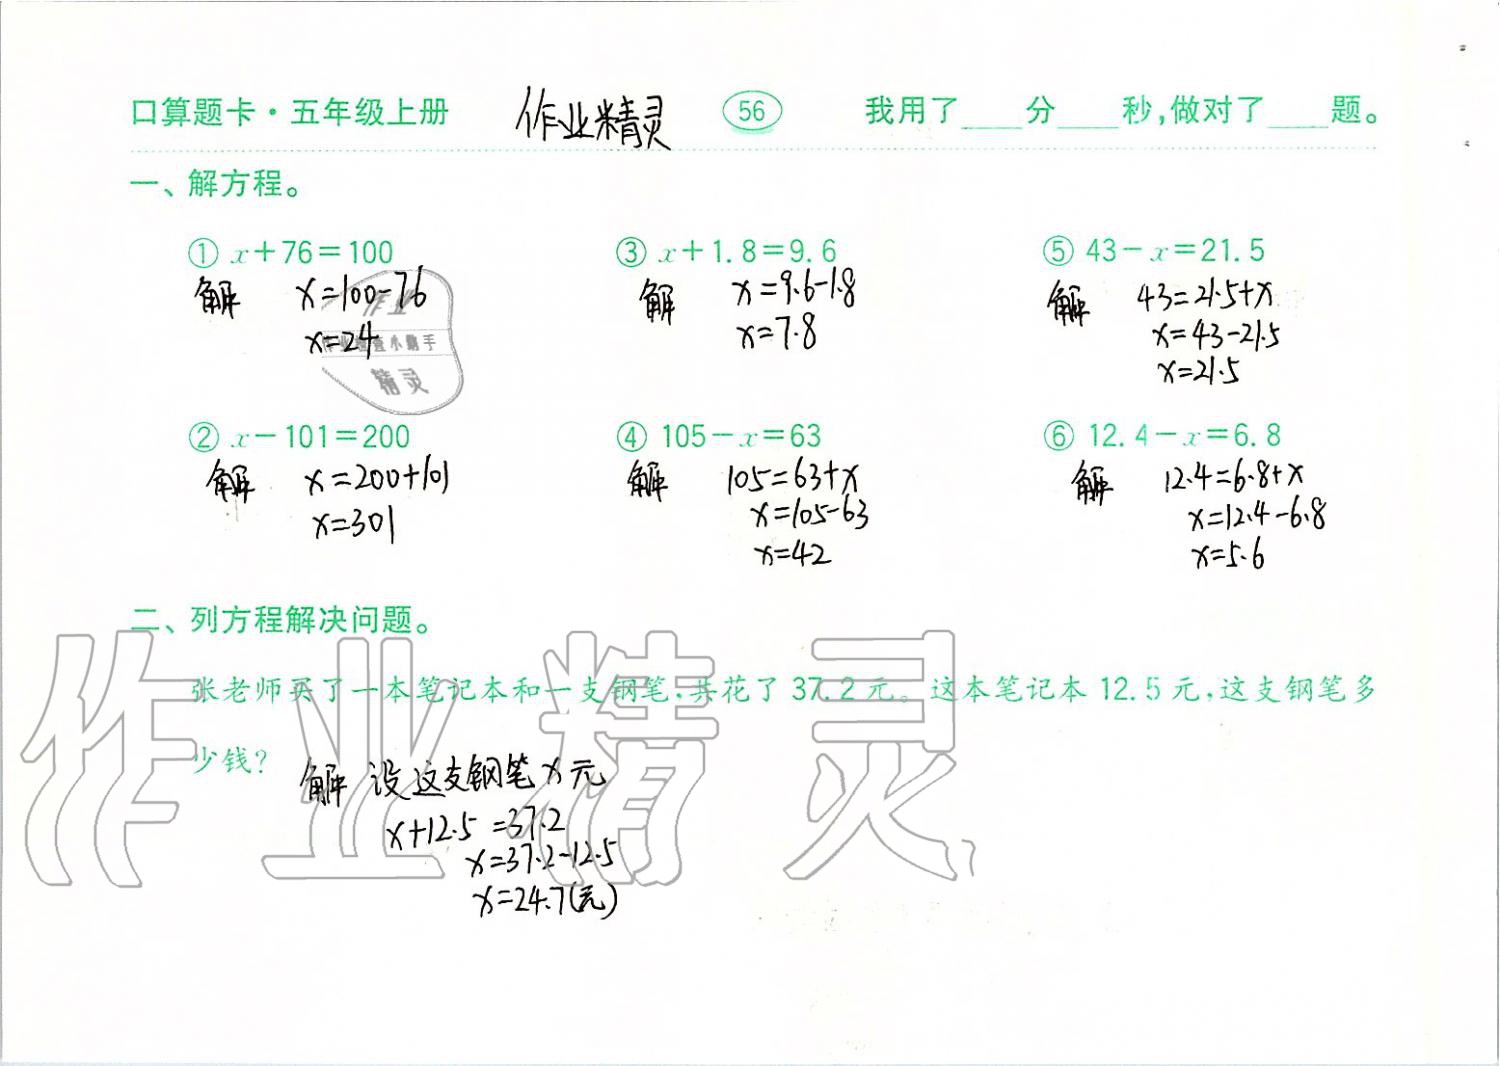 口算题卡·五年级上册 作业精灵 56 我用了____分____秒,做对了____题。
一、解方程。
① x+76=100 ③ x+1.8=9.6 ⑤ 43-x=21.5
解 x=100-76 解 x=9.6-1.8 解 43=21.5+x
x=24 x=7.8 x=43-21.5
x=21.5
作业
作业检查小助手
精灵
② x-101=200 ④ 105-x=63 ⑥ 12.4-x=6.8
解 x=200+101 解 105=63+x 解 12.4=6.8+x
x=301 x=105-63 x=12.4-6.8
x=42 x=5.6
二、列方程解决问题。
张老师买了一本笔记本和一支钢笔,共花了37.2元。这本笔记本12.5元,这支钢笔多
少钱?
解 设这支钢笔x元
x+12.5=37.2
x=37.2-12.5
x=24.7(元)
作业精灵